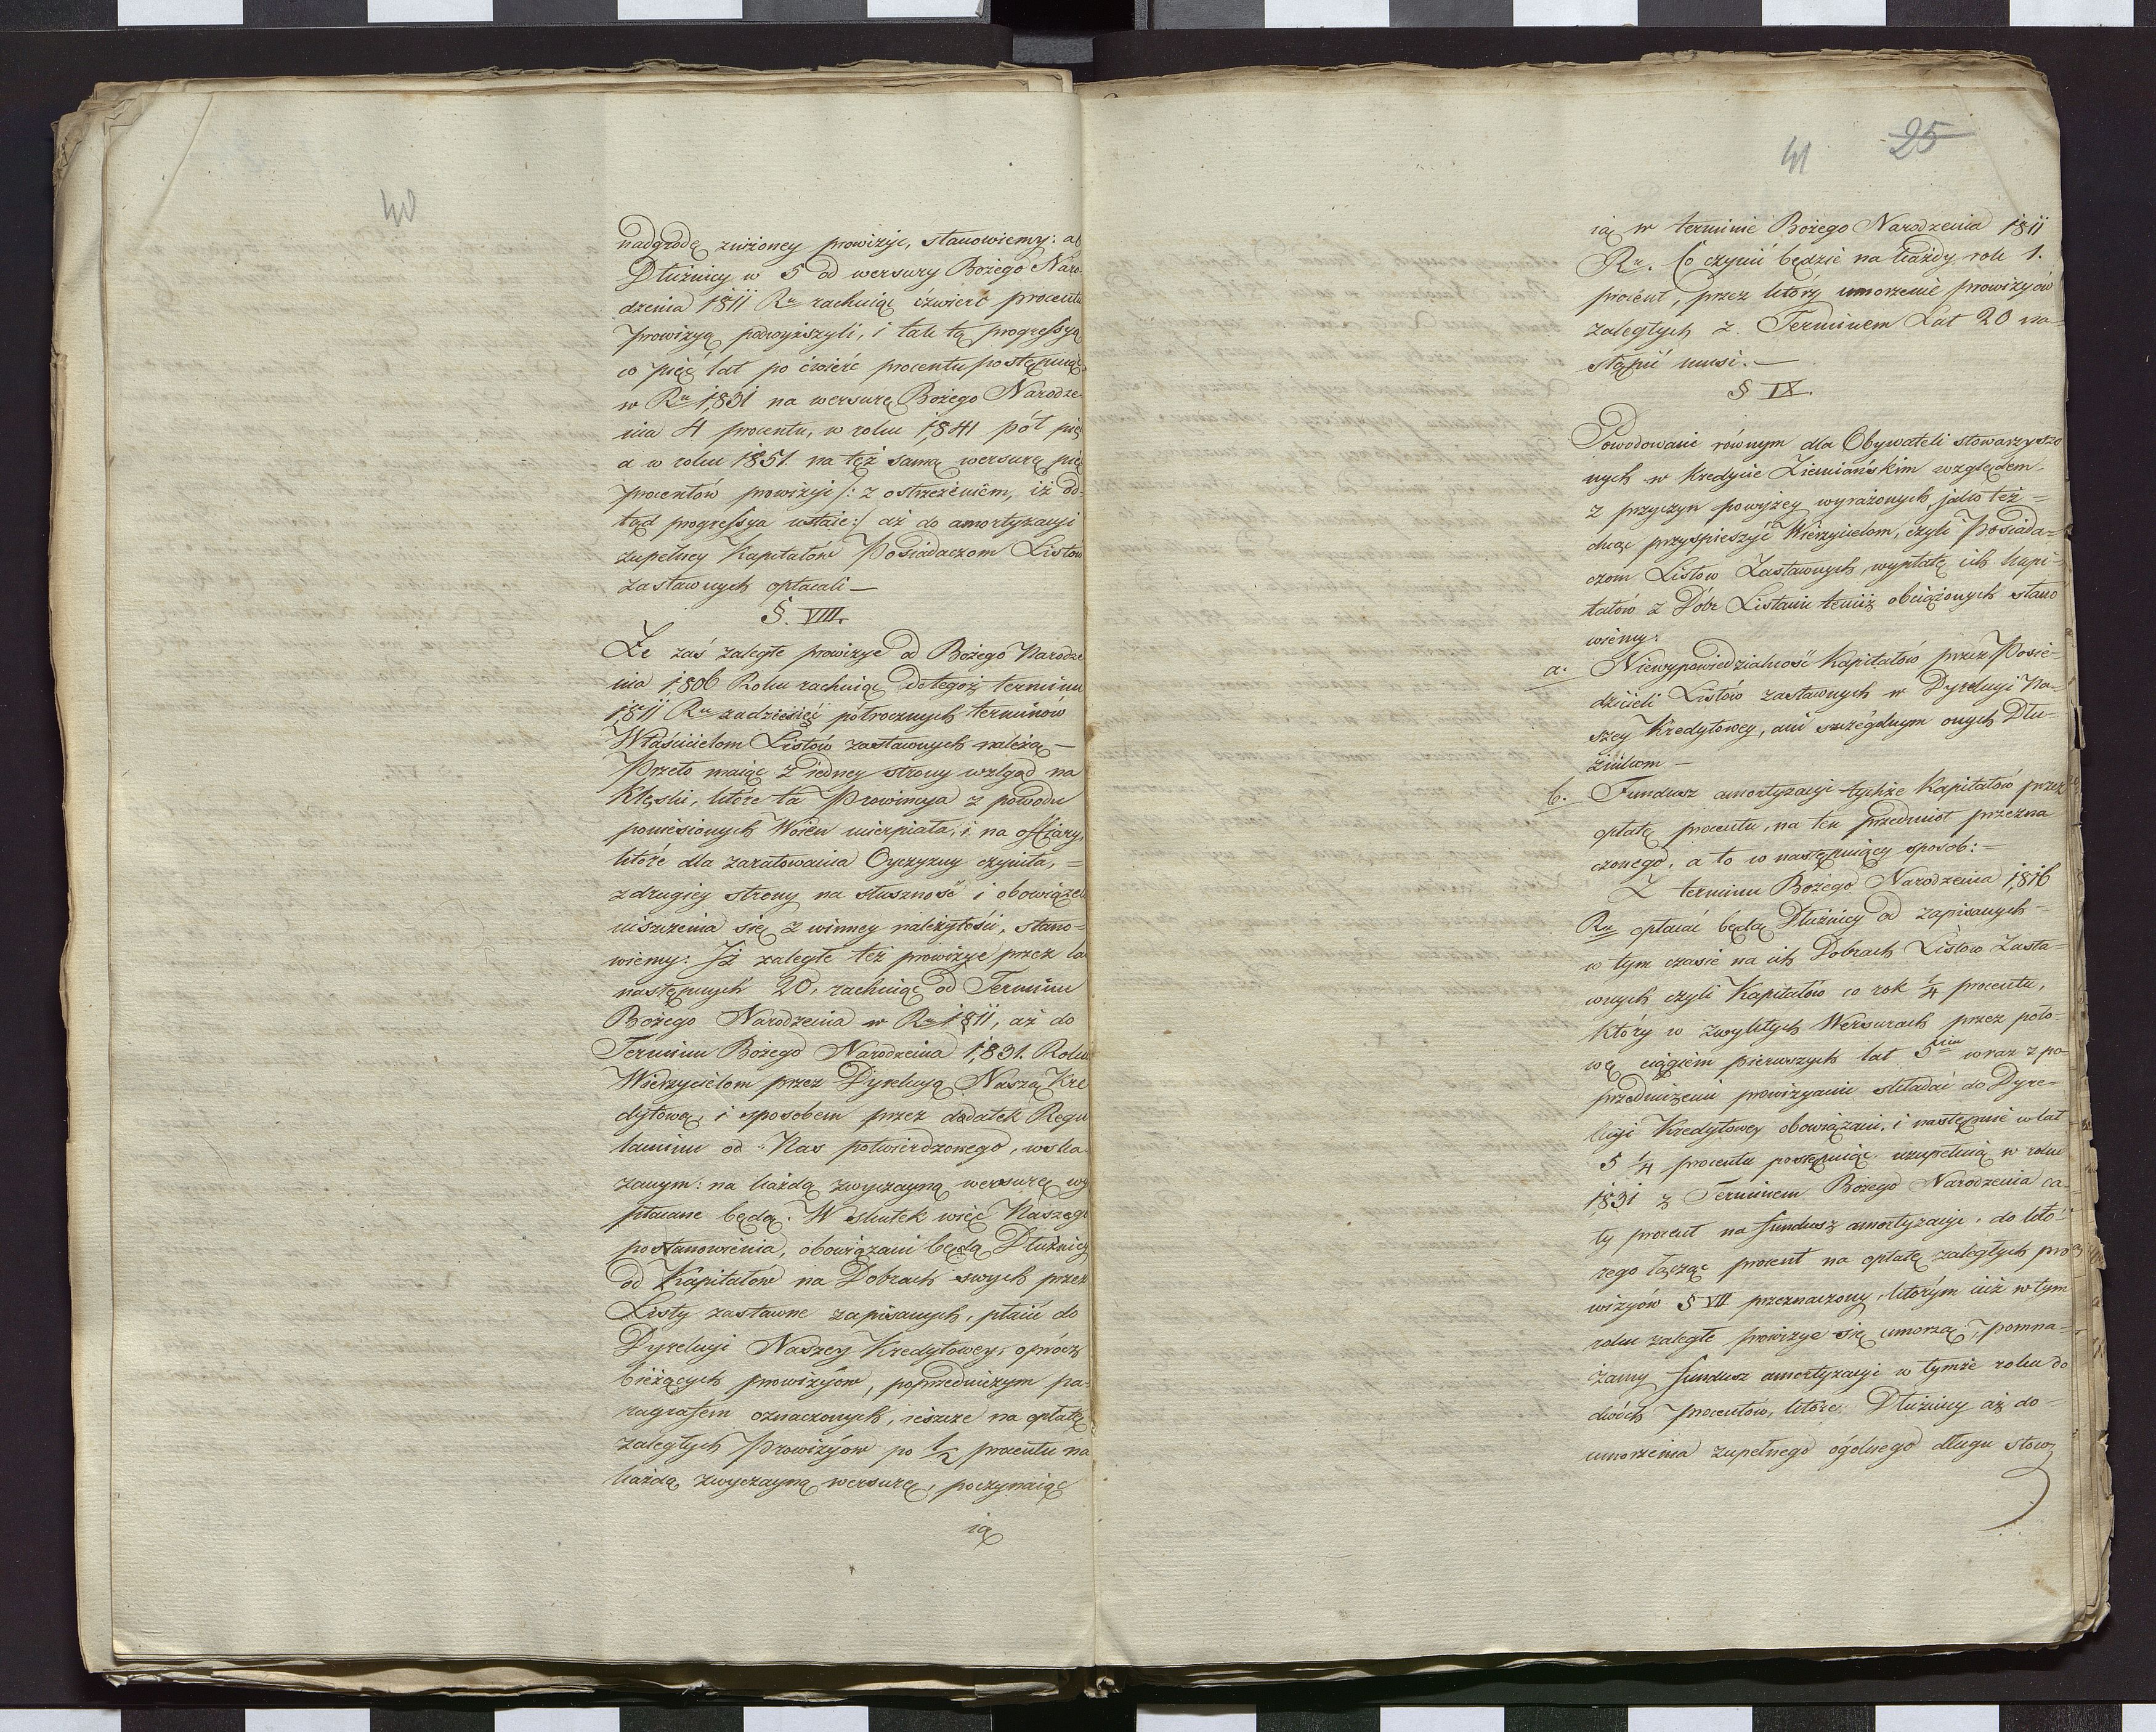 40
nadgrodę zniżoney prowizyi, stanowiemy: ab
Dłużnicy w 5 od wersury Bożego Naro-
dzenia 1811 Ru rachuiąc ćzwierć procentu
prowizyą podwyższyli, i tak tą progressyą
co pięć lat po ćwierć procentu postępuiąc
w Ru 1831 na wersurę Bożego Narodze-
nia 4 procentu, w roku 1841 pół pię
a w roku 1851. na tęż samą wersurę pię
procentów prowizyi /: z ostrzeżeniem, iż od-
tąd progressya ustaie :/ aż do amortyzacyi
zupełney Kapitałów Posiadaczom Listów
zastawnych opłacali —
§. VIII.
Ze zaś zaległe prowizye od Bożego Narodze
nia 1806 Roku rachuiąc do tegoż terminu
1811 Ru za dziesięć półrocznych terminów
Właścicielom Listów zastawnych należą —
Przeto maiąc z iedney strony wzlgąd na
klęski, które ta Prowincya z powodu
poniesionych Woien ucierpiała, i na offiary,
które dla zaratowania Oyczyzny czyniła, =
z drugiey strony na słuszność i obowiązek
uiszczenia się z winney należytości, stano-
wiemy: Iż zaległe też prowizye przez la
następnych 20, rachuiąc od Terminu
Bożego Narodzenia w Ru 1811, aż do
Terminu Bożego Narodzenia 1831. Roku
Wierzycielom przez Dyrekcyą Naszą Kre
dytową, i sposobem przez dodatek Regu
laminu od Nas potwierdzonego, wska
zanym: na każdą zwyczayną wersurę wy
płacane będą. W skutek więc Naszego
postanowienia, obowiązani będą Dłużnicy
od Kapitałów na Dobrach swych przez
Listy zastawne zapisanych, płacić do
Dyrekcyi Naszey Kredytowey, oprócz
bieżących prowizyów, poprzedniczym pa-
ragrafem oznaczonych, ieszcze na opłatę
zaległych Prowizyów po 1/2 procentu na
każdą zwyczayną wersurę, poczynaiąc
ią
41 25
ią w terminie Bożego Narodzenia 1811
Ru. Co czynić będzie na każdy rok 1.
procent, przez który umorzenie prowizyów
zaległych z Terminem Lat 20 na-
stąpić musi. —
§ IX.
Powodowani równym dla Obywateli stowarzyszo
nych w Kredycie Ziemiańskim względem,
z przyczyn powyżey wyrażonych, jako też =
chcąc przyspieszyć Wierzycielom, czyli Posiada-
czom Listów Zastawnych, wypłatę ich kapi-
tałów z Dóbr Listami temiż obciążonych stano
wiemy:
a. Niewypowiedzialność Kapitałów przez Posie-
dzicieli Listów zastawnych w Dyrekcyi Na-
szey Kredytowey, ani szczególnym onych Dłu-
żnikom —
b. Fundusz amortyzacyi tychże Kapitałów przez
opłatę procentu, na ten przedmiot przezna
czonego, a to w następuiący sposob: —
Z terminu Bożego Narodzenia 1816
Ru opłacać będą Dłużnicy od zapisanych -
w tym czasie na ich Dobrach Listów Zasta-
wnych czyli Kapitałów co rok 1/4 procentu,
który w zwykłych Wersurach przez poło-
wę ciągiem pierwszych lat 5ciu wraz z po-
przedniczemi prowizyami składać do Dyre-
kcyi Kredytowey obowiązani, i następnie w lat
5 1/4 procentu postępuiąc uzupełnią w roku
1831 z Terminem Bożego Narodzenia ca-
ły procent na fundusz amortyzacyi, do któ-
rego łącząc procent na opłatę zaległych pro
wizyów § VII przeznaczony, którym iuż w tym
roku zaległe prowizye się umorzą, pomna-
żamy fundusz amortyzacyi w tymże roku do
dwóch procentów, które Dłużnicy aż do -
umorzenia zupełnego ogólnego długu stow